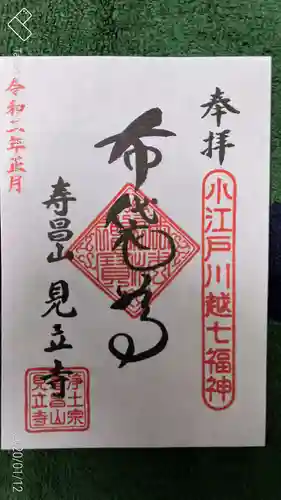 奉拝
小江戸川越七福神
布袋尊
寿昌山 見立寺
浄土宗
寿昌山
見立寺
令和二年正月
20/01/12